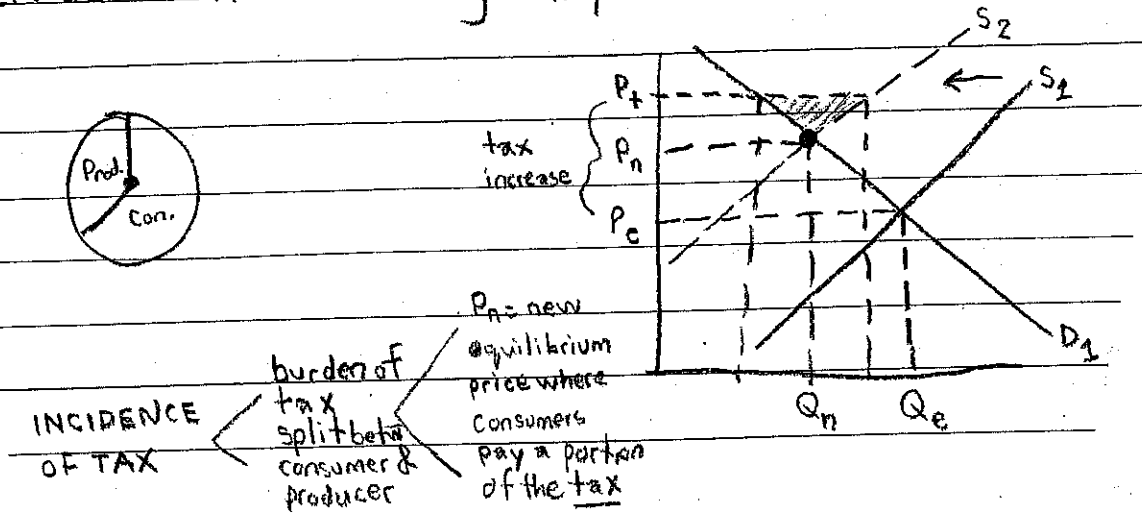 Prod.
Con.
S2
S1
Pt
tax
increase
Pn
Pe
D1
Qn
Qe
INCIDENCE
OF TAX
burden of
tax
split betw
consumer &
producer
Pn = new
equilibrium
price where
consumers
pay a portion
of the tax